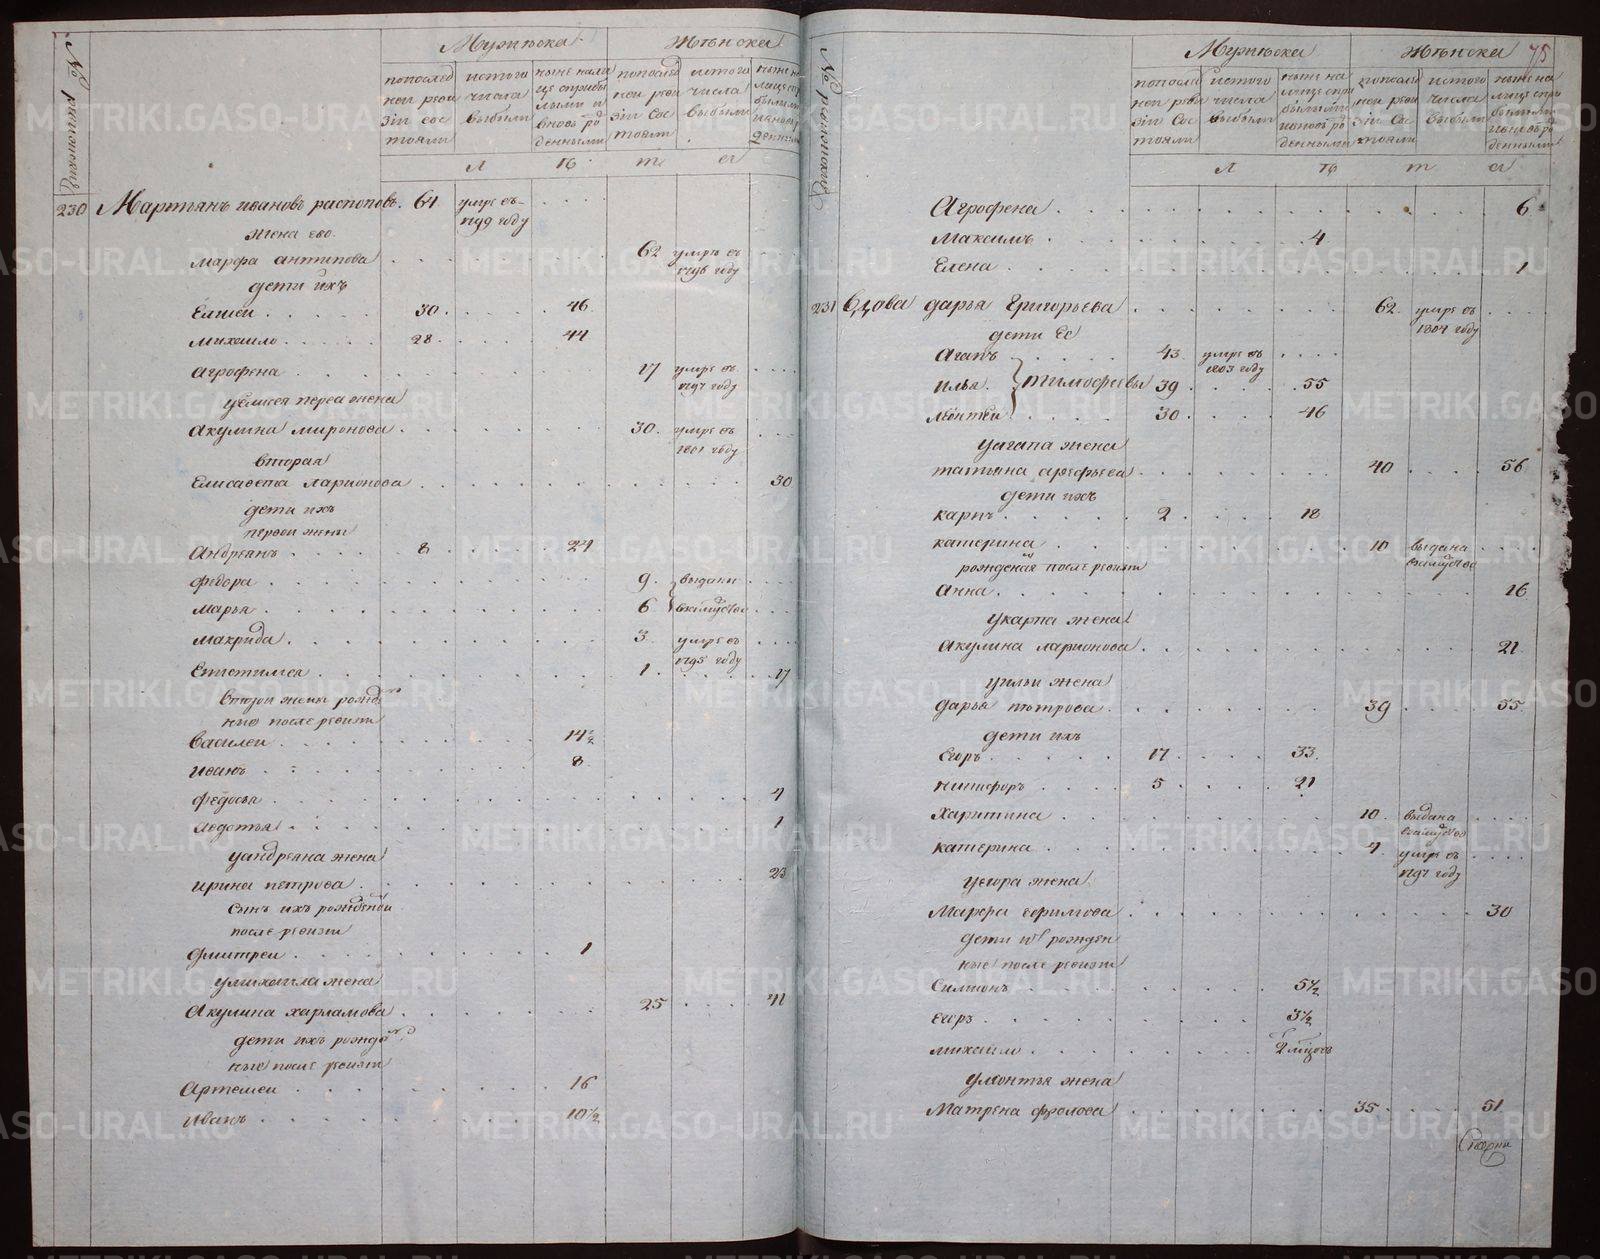 Мужеска Женска
№ ревижские
по послед ней реви зіи сос тояли
ис того числа выбыли
ныне нали це с прибы лыми и вновь ро жденными
по послед ней реви зіи сос тояли
ис того числа выбыли
л ѣ т а
230 Мартьянъ иванов распоповъ 64 умре въ 1799 году
жена его
марфа антипова 62 умре въ 1796 году
дети ихъ
Елисеи 30 46
михаило 28 44
агрофена 17 умре въ 1797 году
у елисея перва жена
акулина миронова 30 умре въ 1801 году
вторая
Елисавета ларионова 30
дети ихъ
первои жены
Андреянъ 8 24
федора 9 выданы
марья 6 в замуство
макрида 3 умре въ 1795 году
Епистимея 1 17
второи жены рожде
ные после ревизіи
василеи 14½
иванъ 8
федосья 4
авдотья 1
у андреяна жена
ирина петрова 23
сынъ ихъ рожденои
после ревизіи
дмитреи 1
у михаила жена
Акулина харламова 25 41
дети ихъ рожде
ные после ревизіи
Артемеи 16
иванъ 10½
75
Мужеска Женска
№ ревижские
по послед ней реви зіи сос тояли
ис того числа выбыли
ныне на лице с при былыми и вновь ро жденными
по послед ней реви зіи сос тояли
ис того числа выбыли
ныне на лице с при былыми и вновь ро жденными
л ѣ т а
Агрофена 6
Максимъ 4
Елена 1
231 Вдова дарья Григорьева 62 умре въ 1804 году
дети Ее
Агапъ 43 умре въ 1803 году
илья тимофеевы 39 55
леонтеи 30 46
у агапа жена
татьяна арефьева 40 56
дети ихъ
карпъ 2 18
катерина 10 выдана в замуство
рожденая после ревизіи
Анна 16
у карпа жена
Акулина ларионова 21
у ильи жена
дарья петрова 39 55
дети ихъ
Егоръ 17 33
никифоръ 5 21
Харитина 10 выдана в замуство
катерина 4 умре въ 1797 году
у егора жена
Марфа ефимова 30
дети их рожден
ные после ревизіи
Симионъ 5½
егоръ 3½
михаило 2 мцовъ
у леонтья жена
Матрена фролова 35 51